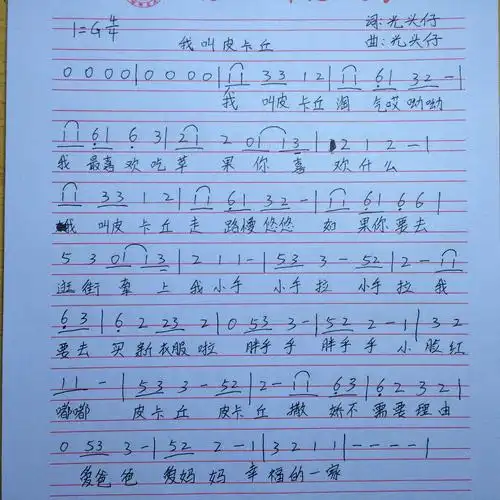 1=G 4/4
词:光头仔
我叫皮卡丘
曲:光头仔
0 0 0 0 | 0 0 0 0 | 11 33 1 2 | 11 61 32 - |
我 叫皮 卡丘 淘 气哎 呦呦
11 61 6 3 | 21 2 01 13 | 2 1 2 - |
我 最喜 欢吃 苹 果 你 喜 欢什么
11 33 1 2 | 11 61 32 - | 11 61 6 6 |
我 叫皮 卡丘 走 路慢 悠悠 如 果你 要去
5 3 01 13 | 2 1 1 - | 53 3 - 52 | 2 - 11
逛街 带 上 我小手 小手 拉 小手 拉 我
63 | 62 23 2 | 0 53 3 - | 52 2 - 1 | 3 2
要去 买 新衣服 啦 胖手 手 胖手 手 小 脸红
11 - | 53 3 - 52 | 2 - 11 63 | 62 32 |
嘟嘟 皮卡 丘 皮卡 丘 撒 娇不 需要 理由
0 53 3 - | 52 2 - 1 | 3 2 1 1 | - - - - |
爱爸 爸 爱妈 妈 幸 福的一家